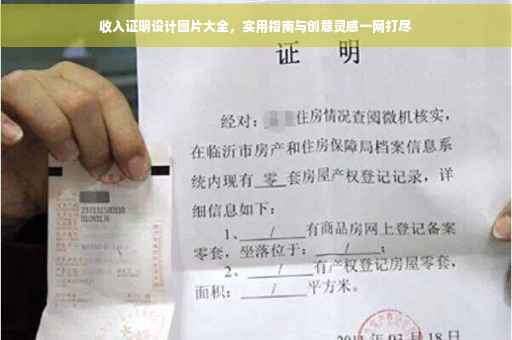 收入证明设计图片大全，实用指南与创意灵感一网打尽
证 明
经对：住房情况查阅微机核实，
在临沂市房产和住房保障局档案信息系
统内现有 零 套房屋产权登记记录，详
细信息如下：
1、 / 有商品房网上登记备案
零套，坐落位于： / ；
2、 / 有产权登记房屋零套，
面积： / 平方米。
03 月 18 日